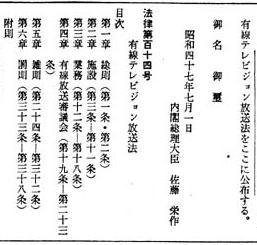 有線テレビジョン放送法をここに公布する。
御名御璽
昭和四十七年七月一日
内閣総理大臣 佐藤 栄作
法律第百十四号
有線テレビジョン放送法
目次
第一章 総則(第一条・第二条)
第二章 施設(第三条―第十一条)
第三章 業務(第十二条―第十八条)
第四章 有線放送審議会(第十九条―第二十三
条)
第五章 雑則(第二十四条―第三十二条)
第六章 罰則(第三十三条―第三十八条)
附則